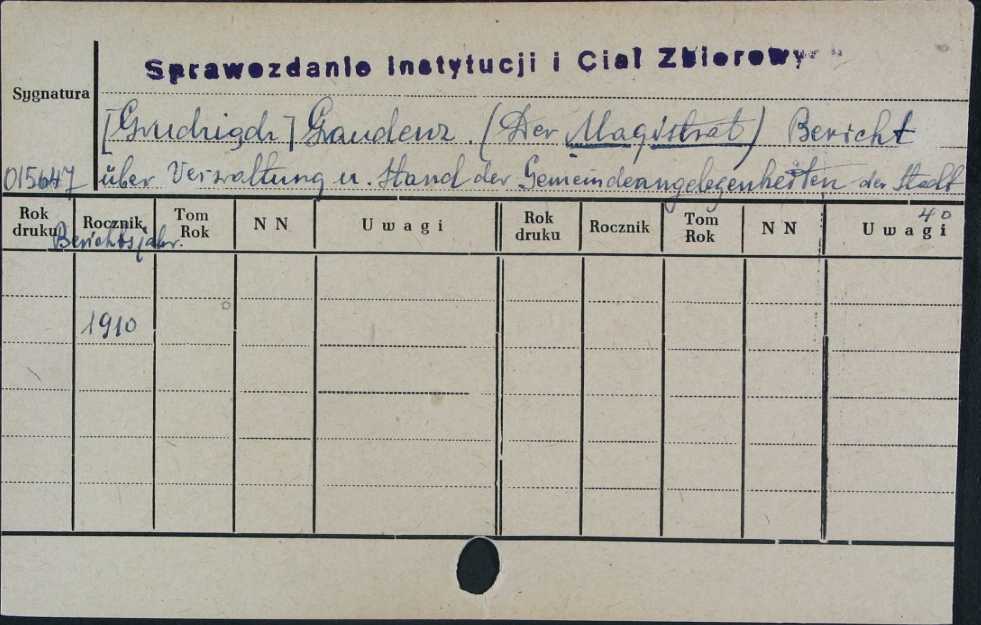 Sprawozdanie Instytucji i Ciał Zbiorowych
Sygnatura
[Grudziądz] Graudenz. (Der Magistrat) Bericht
015647 über Verwaltung u. Stand der Gemeindeangelegenheiten der Stadt
40
Rok druku Rocznik Tom Rok N N Uwagi Rok druku Rocznik Tom Rok N N Uwagi
Berichtsjahr.
1910